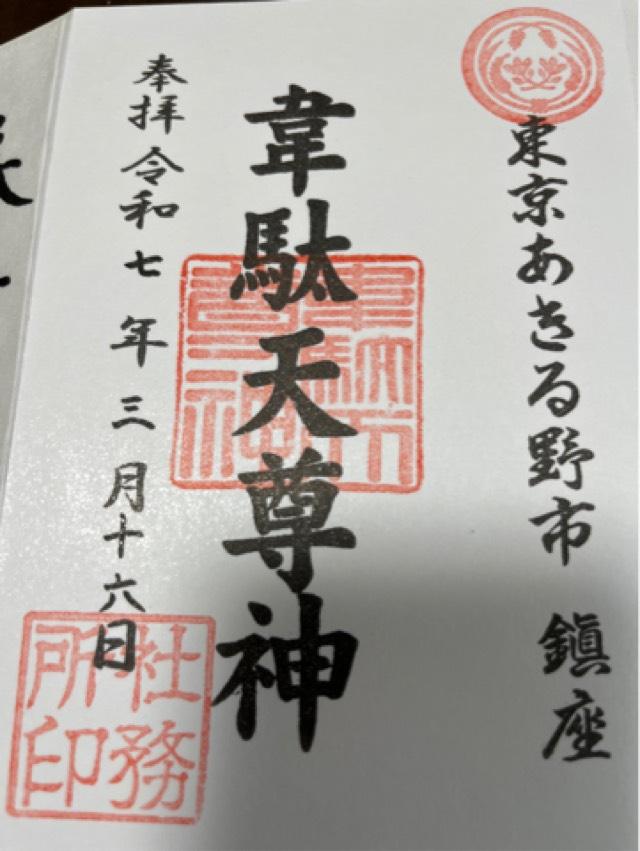 東京あきる野市 鎮座
韋駄天尊神
奉拝 令和七年三月十六日
社務所印